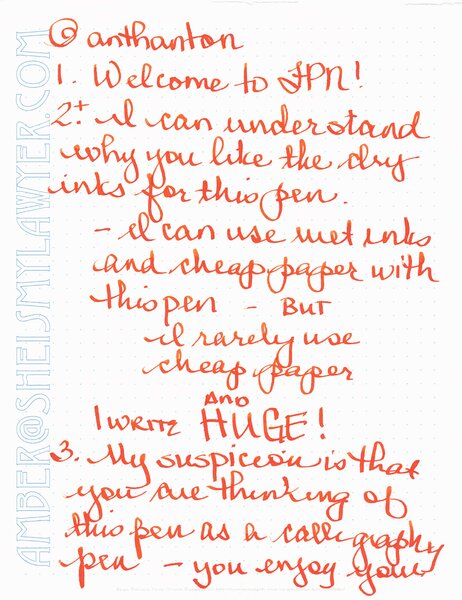 @ anthanton
1. Welcome to FPN!
2+ I can understand
why you like the dry
inks for this pen.
- I can use wet inks
and cheap paper with
this pen - BUT
I rarely use
cheap paper
AND
I WRITE HUGE!
3. My suspicion is that
you are thinking of
this pen as a calligraphy
pen - you enjoy your
AMBER@SHEISMYLAWYER.COM